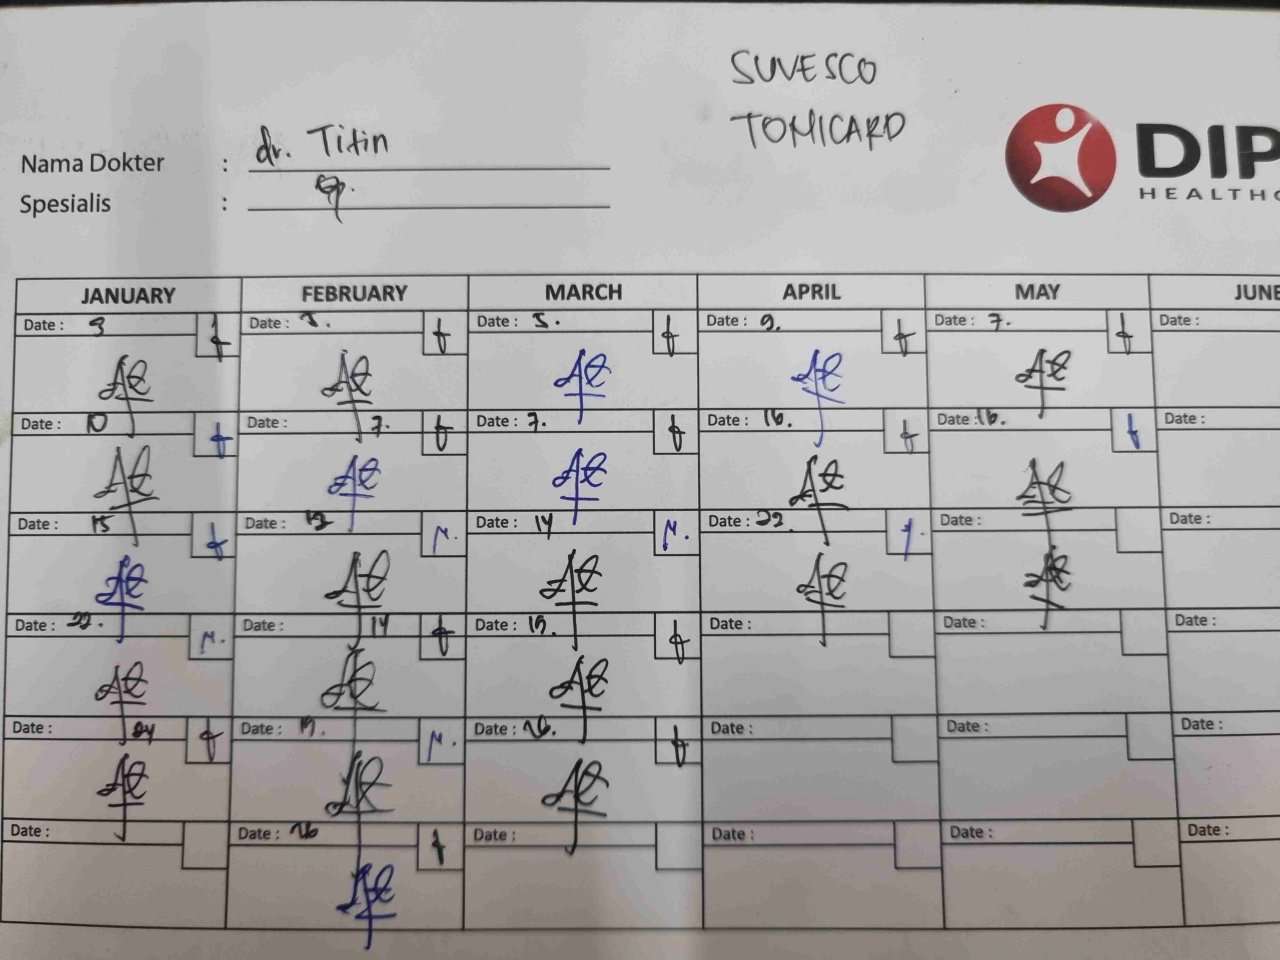 SUVESCO
TOMICARD
DIP
HEALTHC
Nama Dokter : dr. Titin
Spesialis :
JANUARY FEBRUARY MARCH APRIL MAY JUNE
Date : 3 Date : Date : 5. Date : 9. Date : 7. Date :
Date : 10 Date : 7. Date : 7. Date : 16. Date : 16. Date :
Date : 15 Date : Date : 14 Date : 22. Date : Date :
Date : 22. Date : 14 Date : 19. Date : Date : Date :
Date : 24 Date : 19. Date : 26. Date : Date : Date :
Date : Date : 26 Date : Date : Date : Date :